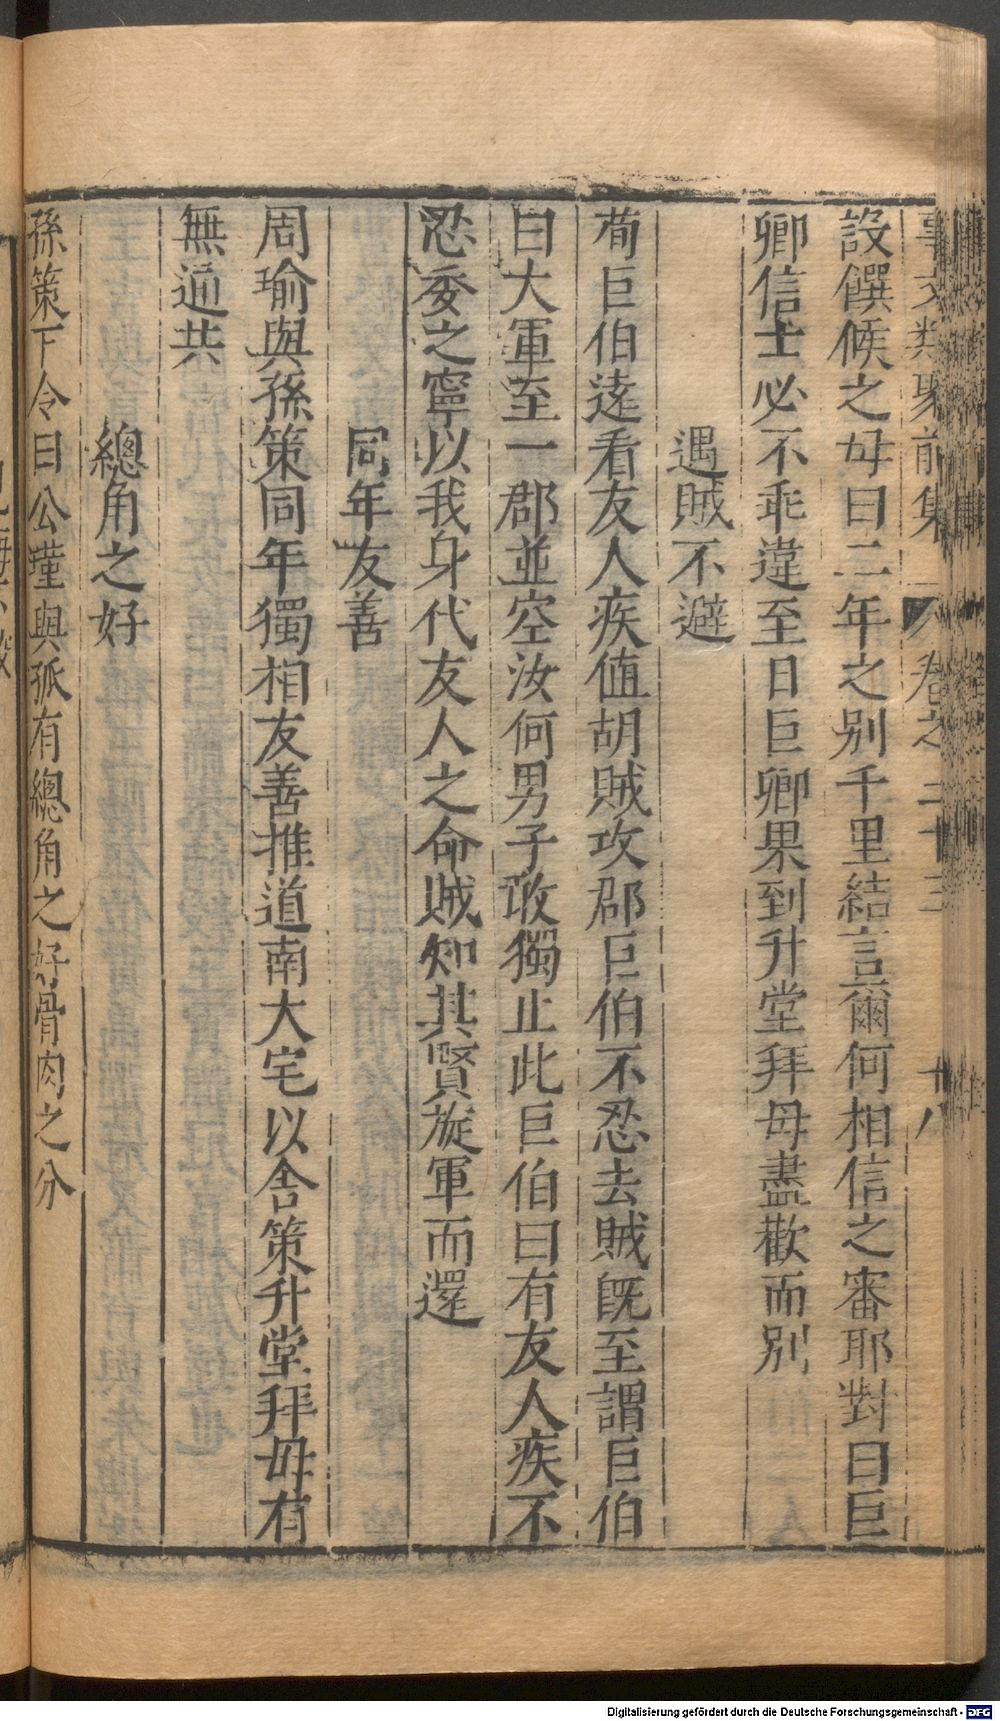 事文類聚前集 卷之二十三 十八
設饌候之母曰二年之别千里結言爾何相信之審耶對曰巨
卿信士必不乖違至日巨卿果到升堂拜母盡歡而别
遇賊不避
荀巨伯逺看友人疾值胡賊攻郡巨伯不忍去賊旣至謂巨伯
曰大軍至一郡並空汝何男子敢獨止此巨伯曰有友人疾不
忍委之寧以我身代友人之命賊知其賢旋軍而還
同年友善
周瑜與孫策同年獨相友善推道南大宅以舍策升堂拜母有
無通共
總角之好
孫策下令曰公瑾與孤有總角之好骨肉之分
Digitalisierung gefördert durch die Deutsche Forschungsgemeinschaft - DFG